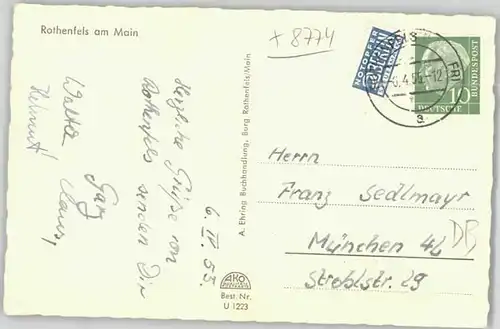 Rothenfels am Main
+ 8774
NOTOPFER
BERLIN
DEUTSCHE
BUNDESPOST
10
-6.4.55.-12
a
Herrn
Franz Sedlmayr
München 42
Stroblstr. 29
A. Ehring Buchhandlung, Burg Rothenfels/Main
AKO
Best. Nr.
U 1223
6. IV. 55.
Herzliche Grüße von
Rothenfels senden Dir
Claus,
Walter
Helmut